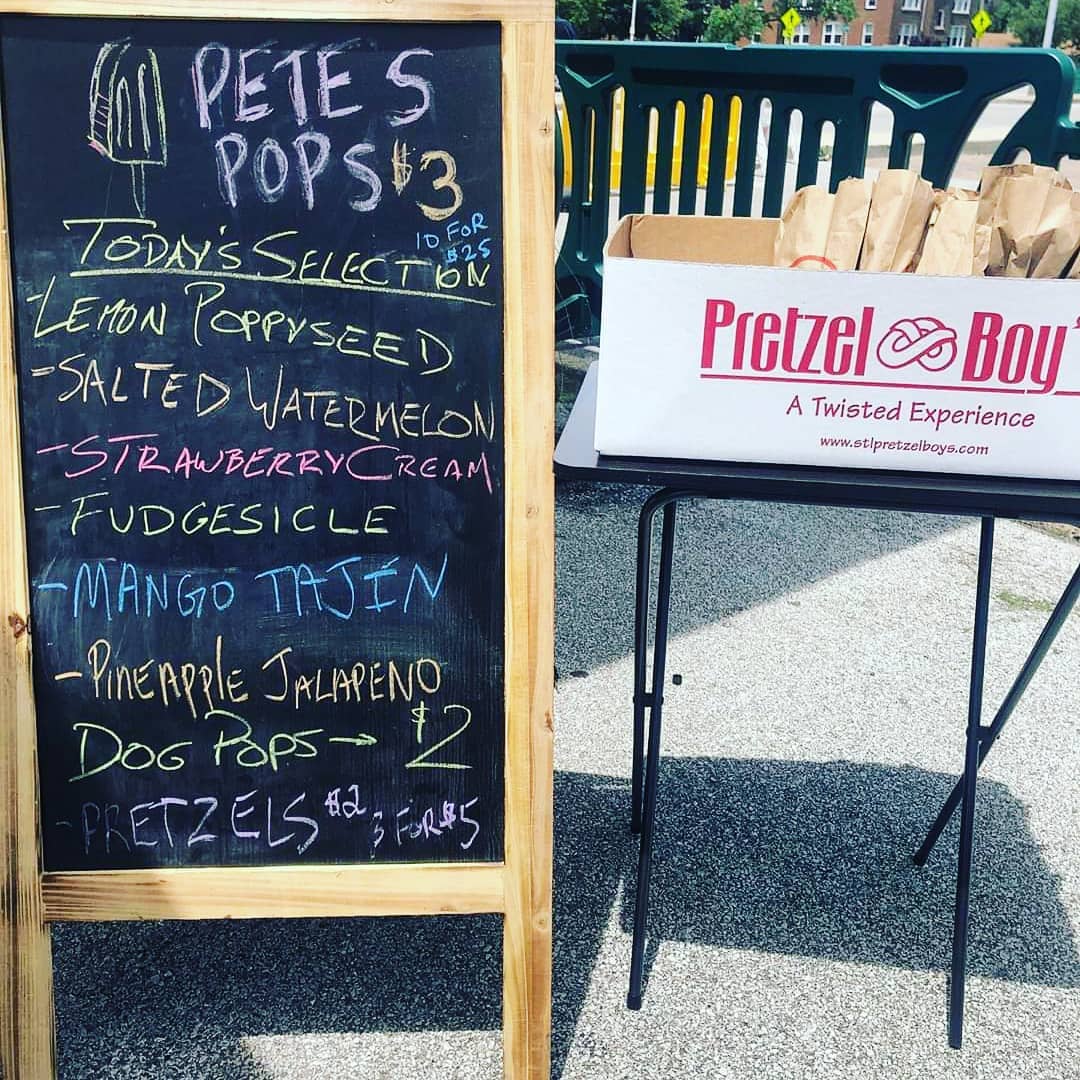 PETE'S
POPS $3
10 FOR
$25
TODAY'S SELECTION
- LEMON POPPYSEED
- SALTED WATERMELON
- STRAWBERRY CREAM
- FUDGESICLE
- MANGO TAJÍN
- PINEAPPLE JALAPENO
DOG POPS → $2
- PRETZELS $2 3 FOR $5
Pretzel Boy's
A Twisted Experience
www.stlpretzelboys.com